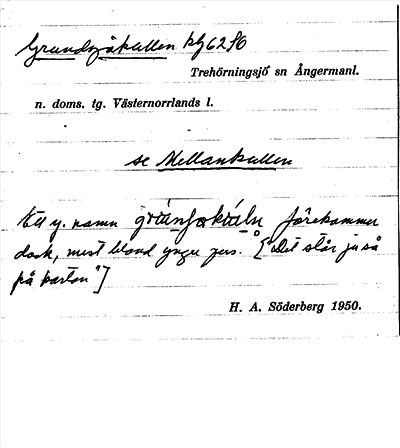 Grundsjökullen
Trehörningsjö sn Ångermanl.
n. doms. tg. Västernorrlands l.
se Mellankullen
Ett y. namn förekommer
dock, mest bland yngre pers. ["Det står ju så
på kartan"]
H. A. Söderberg 1950.